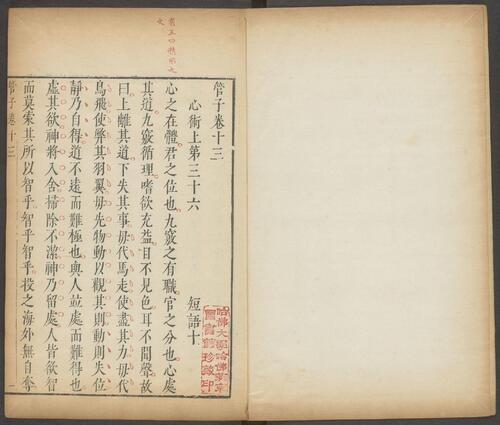 管子卷十三
心術上第三十六
短語十
心之在體君之位也九竅之有職官之分也心處
其道九竅循理嗜欲充益目不見色耳不聞聲故
曰上離其道下失其事毋代馬走使盡其力毋代
鳥飛使弊其羽翼毋先物動以觀其則動則失位
靜乃自得道不遠而難極也與人竝處而難得也
虛其欲神將入舍掃除不潔神乃留處人皆欲智
而莫索其所以智乎智乎智乎投之海外無自奪
管子卷十三
一
哈佛大學哈佛燕京
圖書館珍藏印